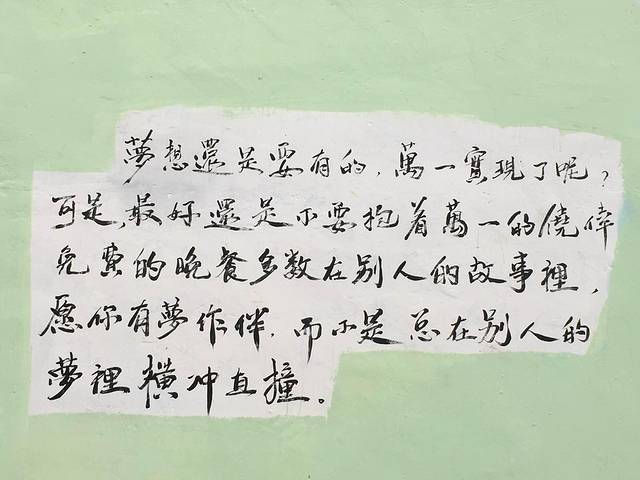 夢想還是要有的，萬一實現了呢？
可是，最好還是不要抱着萬一的僥倖
免費的晚餐多数在别人的故事裡，
愿你有夢作伴，而不是总在别人的
夢裡横冲直撞。